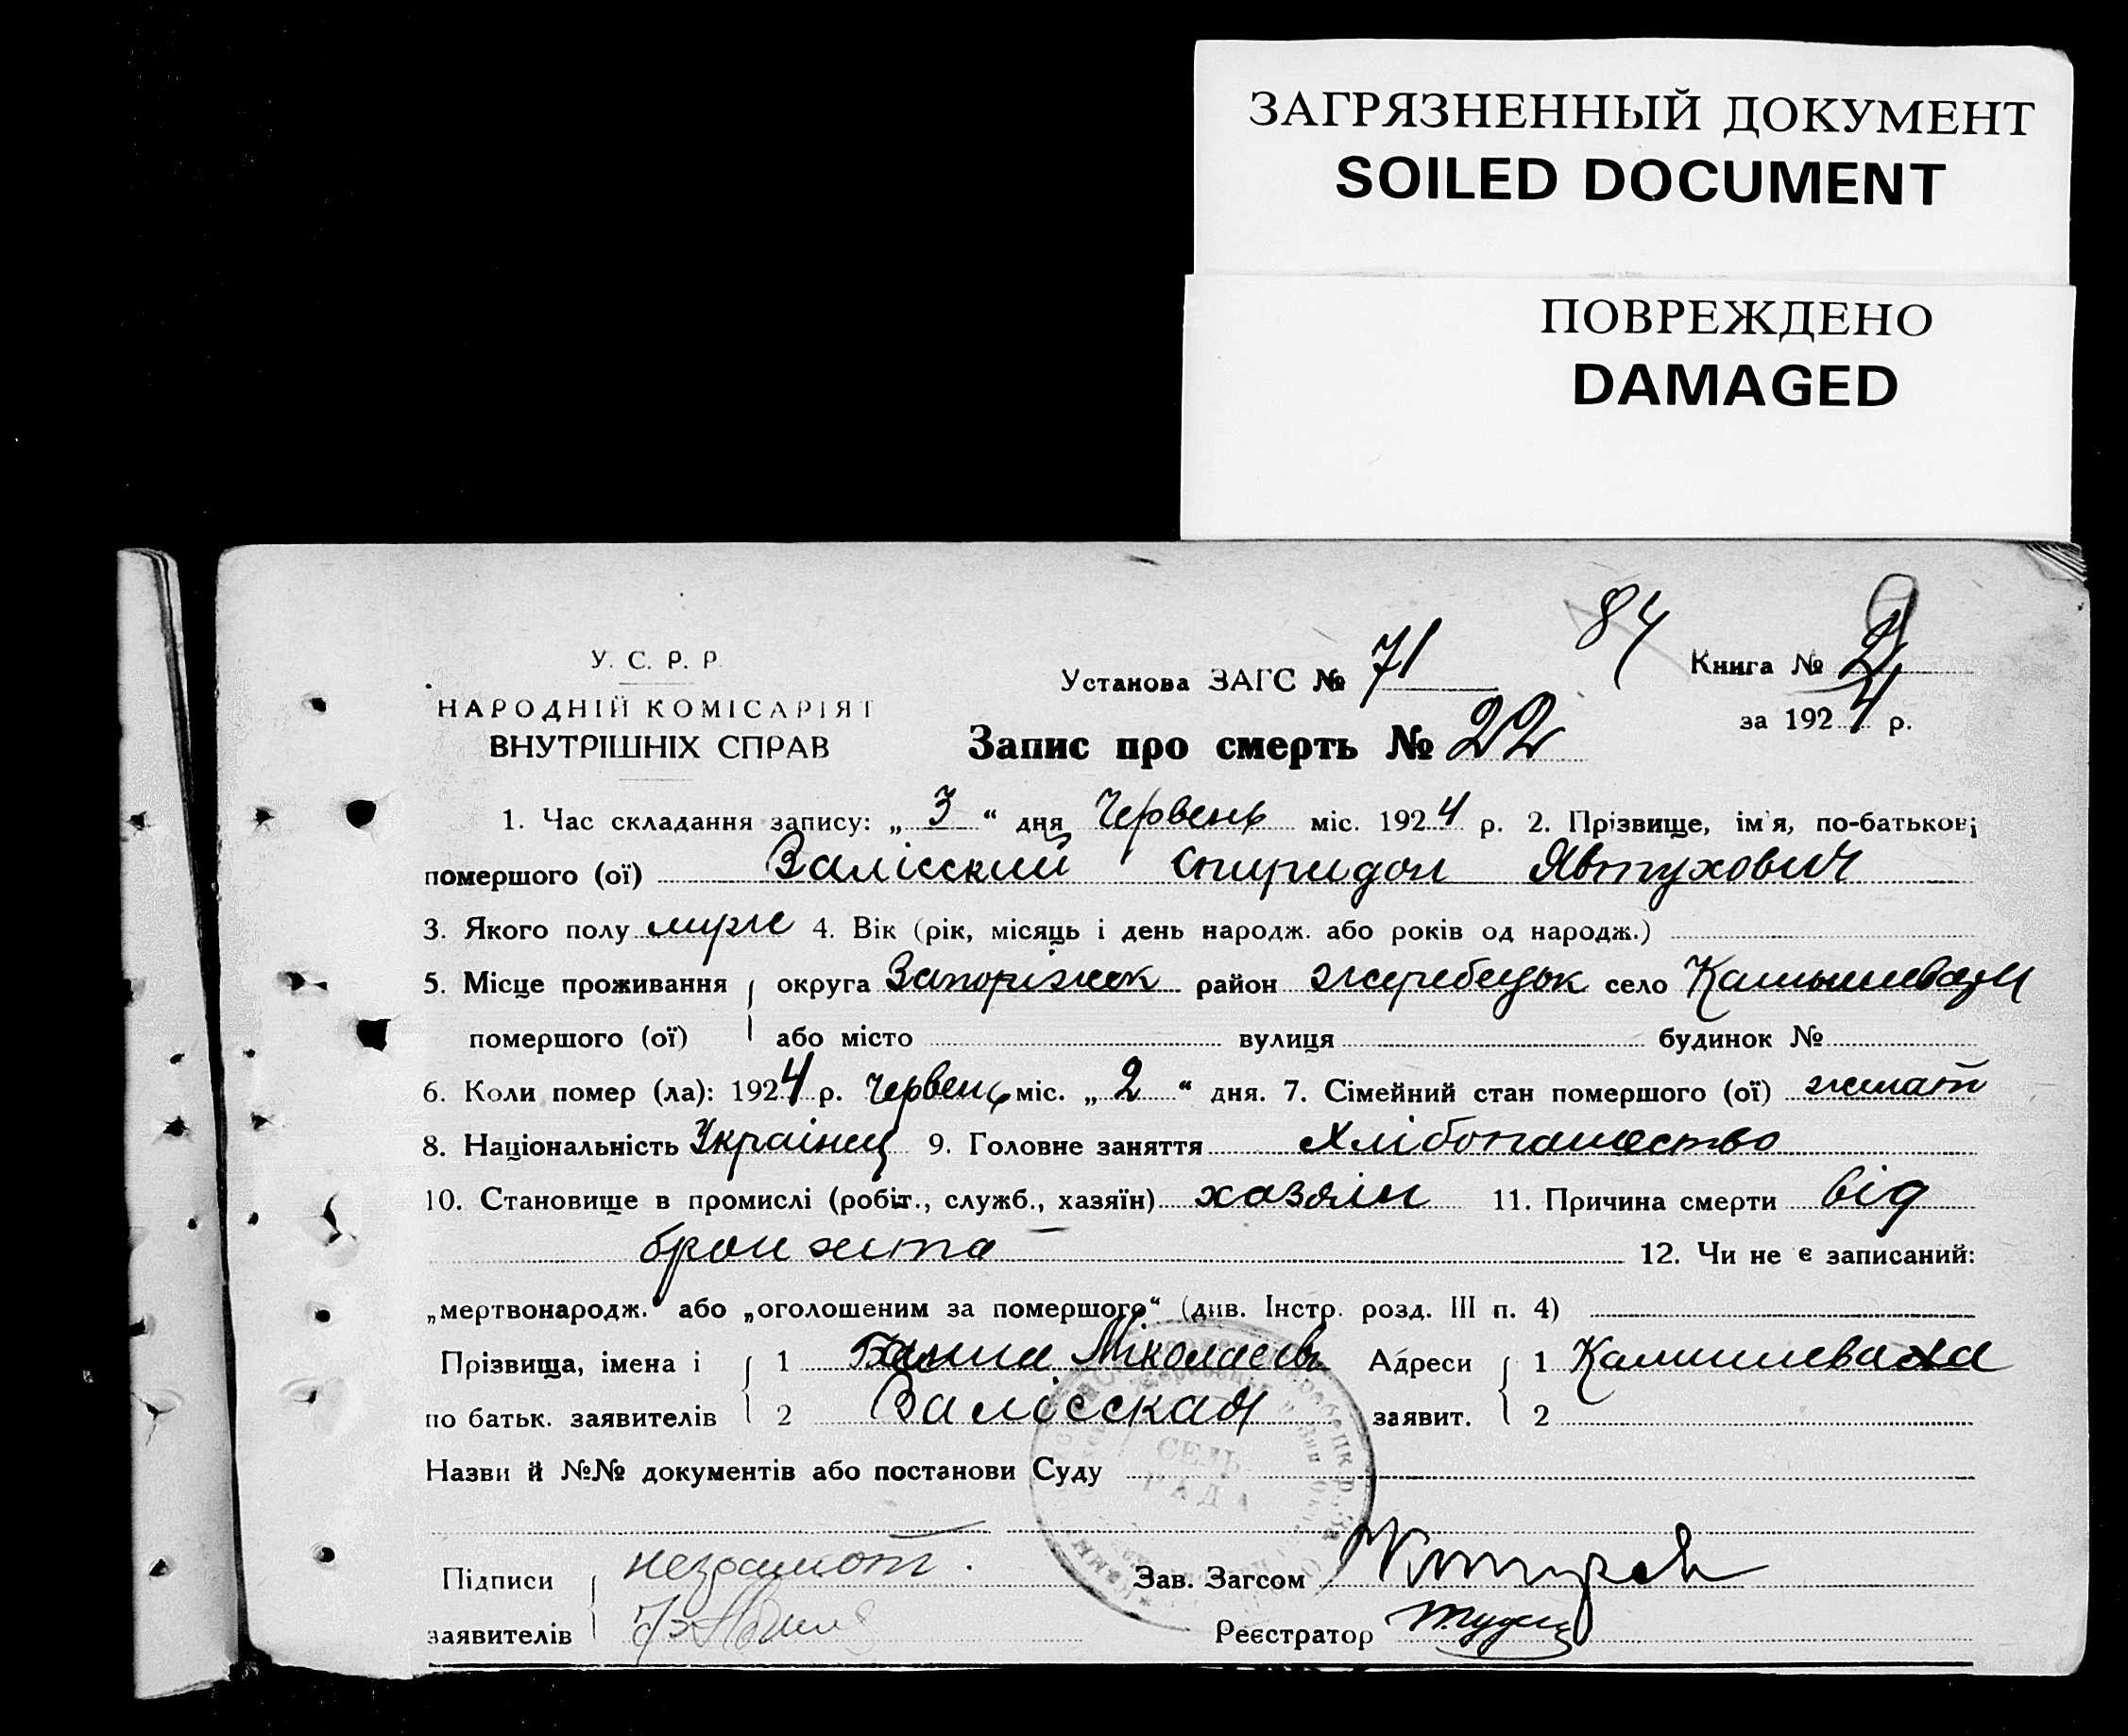 ЗАГРЯЗНЕННЫЙ ДОКУМЕНТ
SOILED DOCUMENT
ПОВРЕЖДЕНО
DAMAGED
84
У. С. Р. Р.
НАРОДНІЙ КОМІСАРІЯТ
ВНУТРІШНІХ СПРАВ
Установа ЗАГС № 71
Книга № 2
за 1924 р.
Запис про смерть № 22
1. Час складання запису: „ 3 “ дня Червень міс. 1924 р. 2. Прізвище, ім'я, по-батькові
помершого (ої) Валісский Спиридон Явтухович
3. Якого полу муже 4. Вік (рік, місяць і день народж. або років од народж.)
5. Місце проживання округа Запоріжок район Жеребецьк село Камышеваха
помершого (ої) або місто вулиця будинок №
6. Коли помер (ла): 1924 р. червень міс. „ 2 “ дня. 7. Сімейний стан помершого (ої) жинат
8. Національність Українец 9. Головне заняття Хлібопашество
10. Становище в промислі (робіт., служб., хазяїн) хазяін 11. Причина смерти від
бронхита 12. Чи не є записаний:
„мертвонародж.“ або „оголошеним за помершого“ (див. Інстр. розд. III п. 4)
Прізвища, імена і 1 Ніколаевн Адреси 1 Камишеваха
по батьк. заявителів 2 Валісская заявит. 2
Назви й №№ документів або постанови Суду
СЕЛЬ-
РАДА
Підписи неграмот.
Зав. Загсом
заявителів
Реєстратор